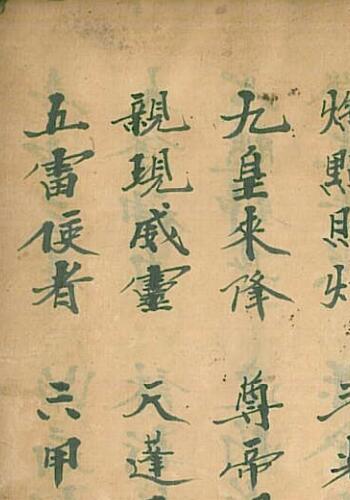 點照
九皇來降 尊帝
親現威靈 天蓬
五雷使者 六甲